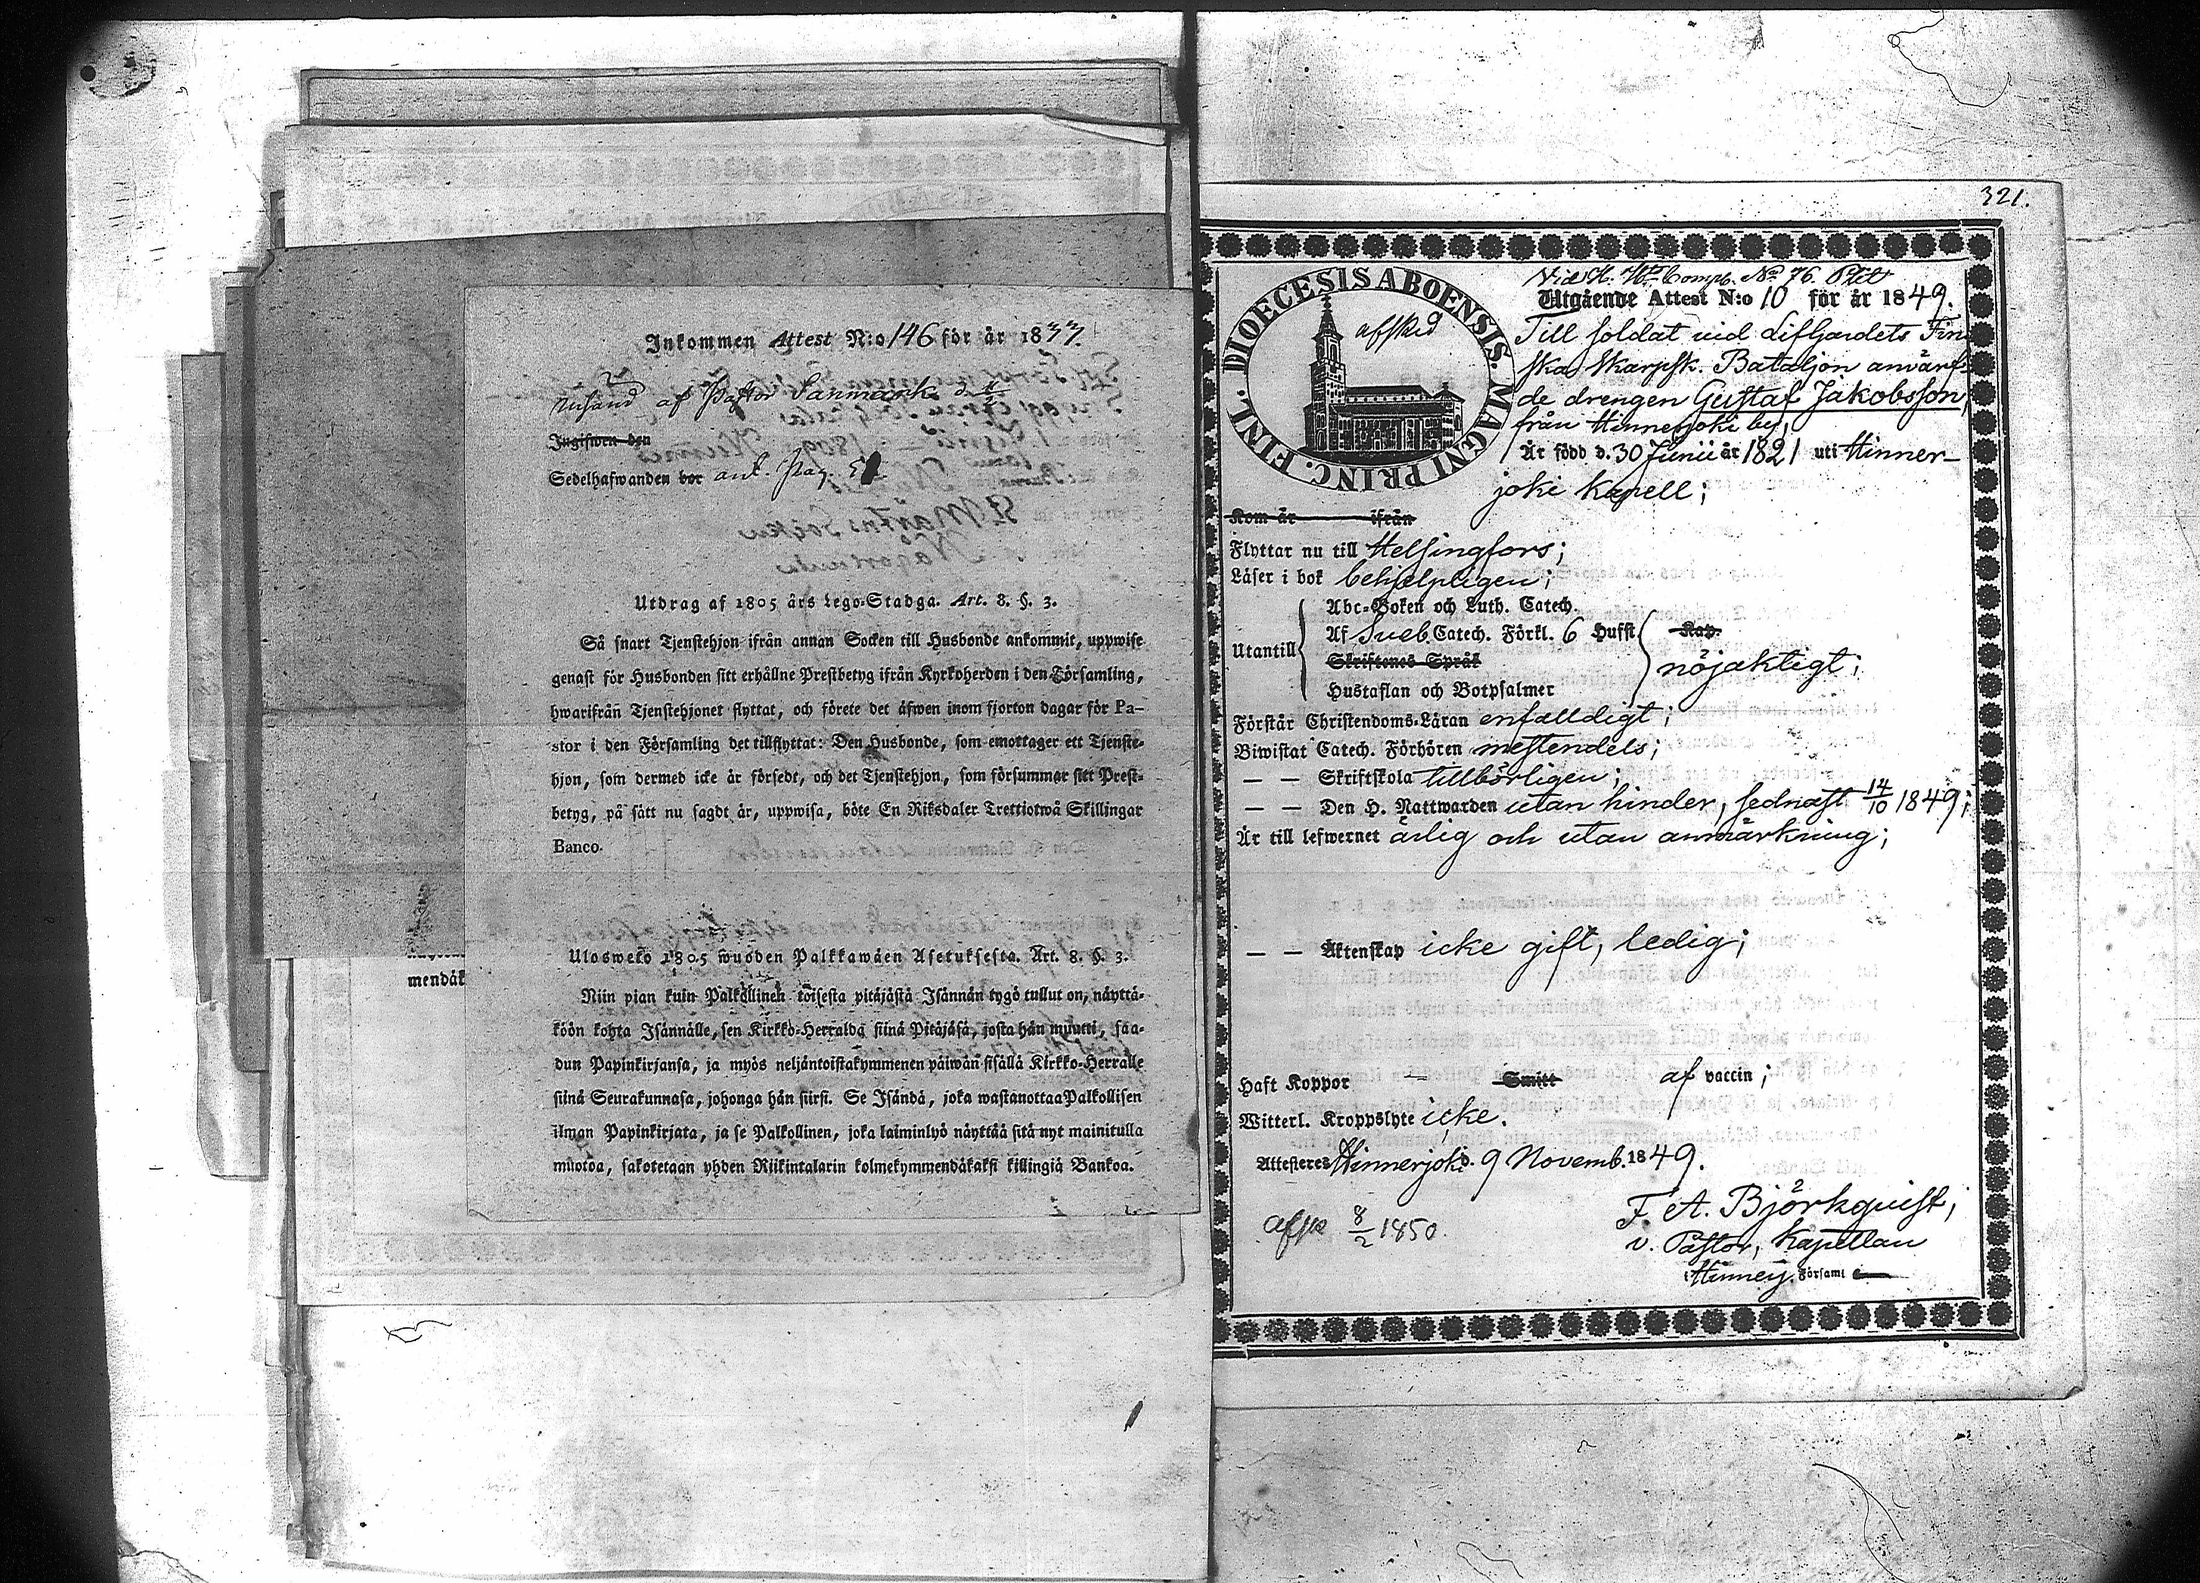 Inkommen Attest N:o 146 för år 1837.
af Pastor Sanmark d.
Ingifwen den
Sedelhafwanden bor ant. pag.
Utdrag af 1805 års Lego-Stadga. Art. 8. §. 3.
Så snart Tjenstehjon ifrån annan Socken till Husbonde ankommit, uppwise
genast för Husbonden sitt erhållne Prestbetyg ifrån Kyrkoherden i den Församling,
hwarifrån Tjenstehjonet flyttat, och förete det äfwen inom fjorton dagar för Pa-
stor i den Församling det tillflyttat: Den Husbonde, som emottager ett Tjenste-
hjon, som dermed icke är försedt, och det Tjenstehjon, som försummar sitt Prest-
betyg, på sätt nu sagdt är, uppwisa, böte En Riksdaler Trettiotwå Skillingar
Banco.
Ulosweto 1805 wuoden Palkkawäen Asetuksesta. Art. 8. §. 3.
Niin pian kuin Palkollinen toisesta pitäjästä Isännän tygö tullut on, näyttä-
köön kohta Isännälle, sen Kirkko-Herralda siinä Pitäjäsä, josta hän muutti, saa-
dun Papinkirjansa, ja myös neljäntoistakymmenen päiwän sisällä Kirkko-Herralle
siinä Seurakunnasa, johonga hän siirsi. Se Isändä, joka wastanottaa Palkollisen
ilman Papinkirjata, ja se Palkollinen, joka laiminlyö näyttää sitä nyt mainitulla
muotoa, sakotetaan yhden Riikintalarin kolmekymmendäkaksi killingiä Bankoa.
mendäk
321.
FINL. DIOECESIS ABOENSIS. MAGNI PRINC.
afsked
Vid H. Comp. No 76.
Utgående Attest N:o 10 för år 1849.
Till soldat vid Lifgardets Fin
ska skarpsk. Bataljon anvärf-
de drengen Gustaf Jakobsson,
från Hinnerjoki by,
Är född d. 30 Junii år 1821 uti Hinner-
joki Kapell;
Kom år ifrån
Flyttar nu till Helsingfors;
Läser i bok behjelpligen;
Utantill
Abc-Boken och Luth. Catech.
Af Sveb. Catech. Förkl. 6 Hufst. Kap.
Skriftenes Språk
nöjaktigt;
Hustaflan och Botpsalmer
Förstår Christendoms-Läran enfaldigt;
Biwistat Catech. Förhören mestendels;
— — Skriftskola tillbörligen;
— — Den H. Nattwarden utan hinder, sednast 14/10 1849;
Är till lefwernet ärlig och utan anmärkning;
— — Äktenskap icke gift, ledig;
Haft Koppor — Smitt af vaccin;
Witterl. Kroppslyte icke.
Attesteres Hinnerjoki d. 9 Novemb. 1849.
F. A. Björkqvist,
v. Pastor, Kapellan
i Hinnerj. Församl
8/2 1850.